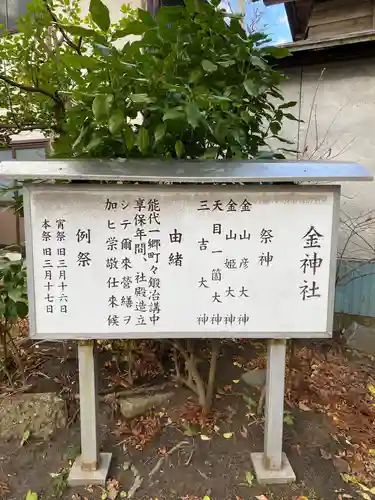 金神社
祭神
金山彦大神
金山姫大神
天目一箇大神
三吉大神
由緒
能代一郷町々鍛冶講中
享保年間、社殿造立
シテ爾來營繕ヲ
加ヒ崇敬仕来候
例祭
宵祭旧三月十六日
本祭旧三月十七日